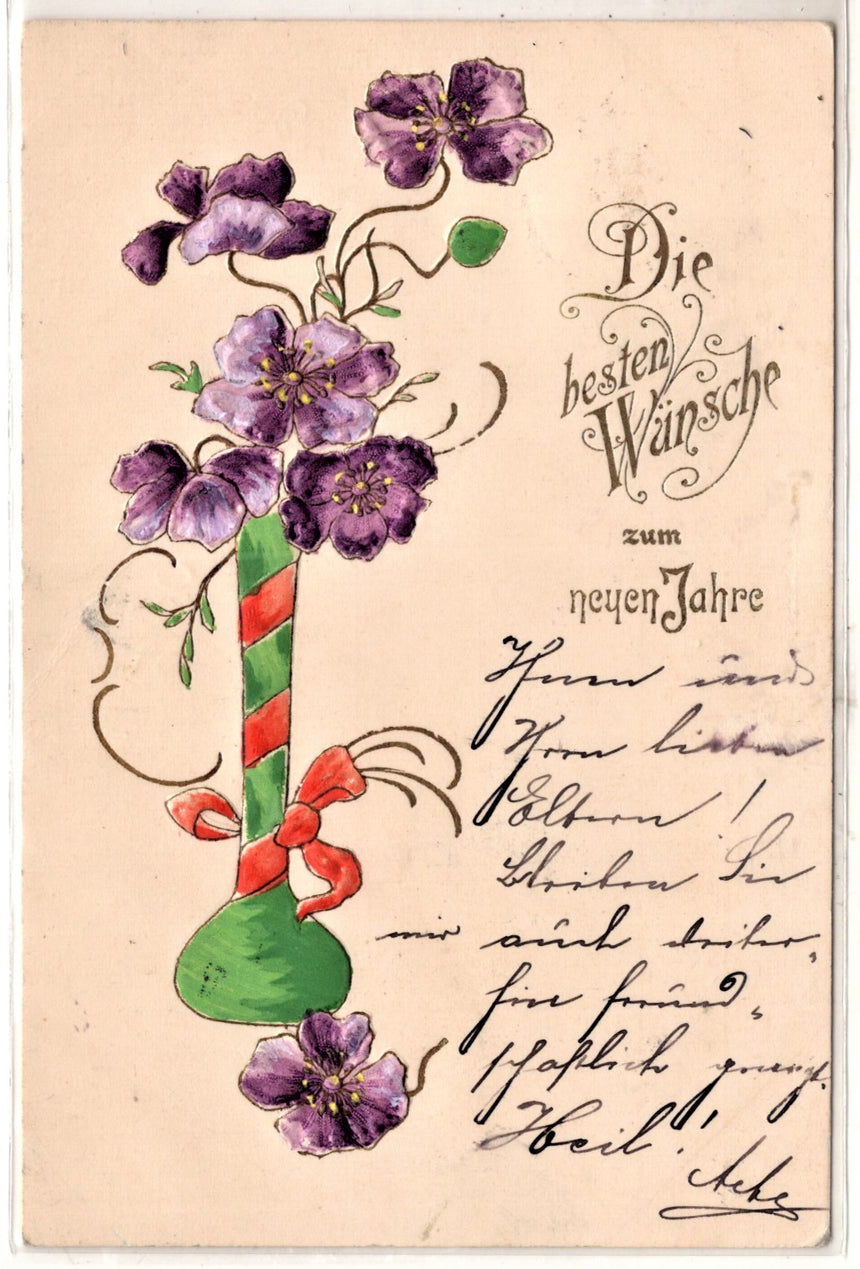 Die
besten
Wünsche
zum
neuen Jahre
Ihnen und
Ihren lieben
Eltern!
Bleiben Sie
mir auch weiter„
hin freund„
schaftlich geneigt.
Heil!